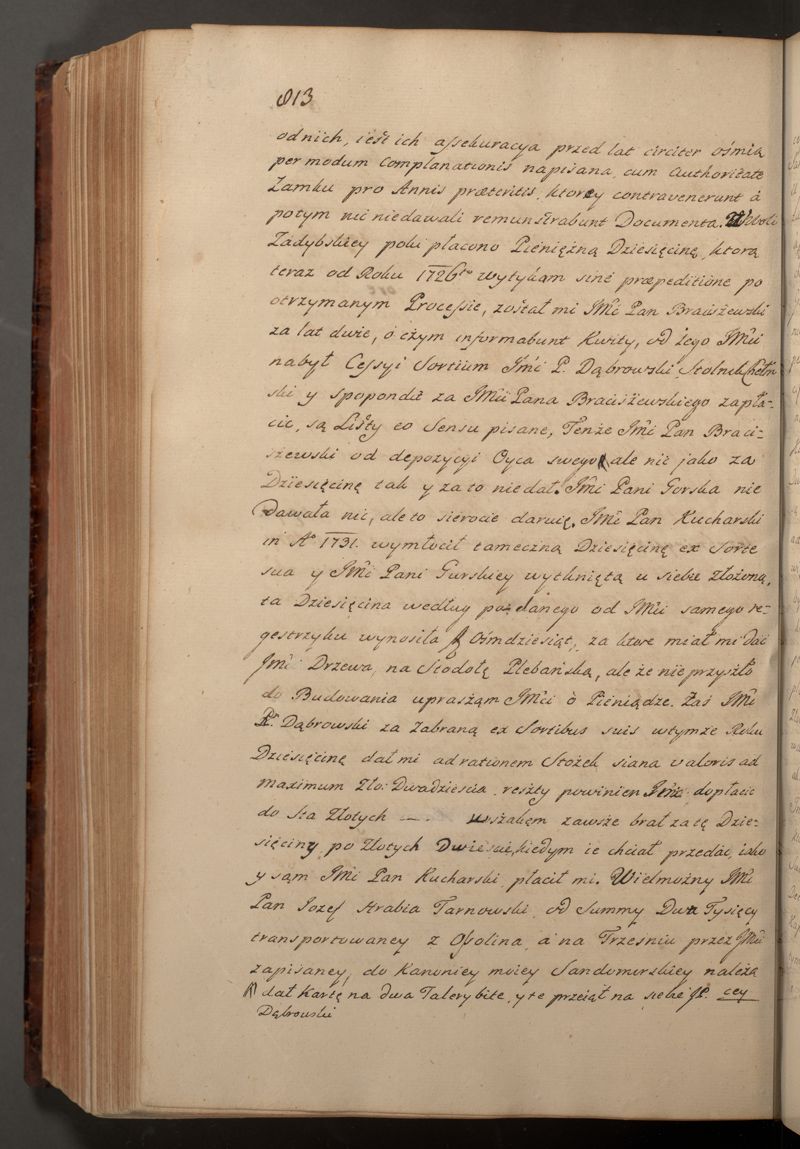 813
od nich, iest ich assekuracya przed lat circiter ośmią
per modum Complanationis napisana, cum Authoritate
Zamku pro Annis præteritis, ktorey contravenerunt á
potym nic niedawali remunstrabunt Documenta. Woli
Zadybskiey poki płacono Pieniężną Dziesięcinę, ktorą
teraz od Roku 1726to wytykam sine præpeditione po
otrzymanym Processie, został mi JMci Pan Braciszewski
za lat dwie, o czym informabunt Kwity, od iego JMci
nabył Cessyi Sortium Jmci P. Dąbrowski Stolnik Chełm
ski y Spopondit za JMci Pana Braciszewskiego zapła-
cic, są Listy eo Sensu pisane, Tenże JMci Pan Braci-
szewski od depozycyi Oyca swego ale nie jako za
Dziesięcinę tak y za to nie dał. JMci Pani Gorska nie
Dawała nic, ale to sierocie daruię. JMci Pan Kucharski
in Ao 1731. wymłocił tameczną Dziesięcinę ex Sorte
sua y JMci Pani Gurskiey wytkniętą u siebie złożoną,
ta Dziesięcina według podanego od JMci samego re-
gestrzyku wynosiła f Ośmdziesiąt, za ktore miał mi dać
Jmci Drzewa, na Stodołę Plebańską, ale że nie przyszło
do Budowania upraszam JMci o Pieniądze. Zaś JMci
P. Dąbrowski za Zabraną ex Sortibus suis wtymże Roku
Dziesięcinę dał mi ad rationem Stożek siana valoris ad
maximum Zło: Dwadziescia, reszty powinien Jmć dopłacic
do Sta Złotych wszakem zawsze brał za tę Dzie-
sięciny po Złotych Dwiescie, kiedym ie chciał przedac, iako
y sąm JMci Pan Kucharski płacił mi. Wielmożny JMci
Pan Iozef Hrabia Tarnowski od Summy Dwa Tysięcy
transportowaney z Ossolina, a na Trzesniu przez JMci
zapisaney, do Kanoniey moiey Sandomirskiey należą
cey
dał Kartę na dwa Talery bite, y te przeiął na siebie JP.
Dąbrowski